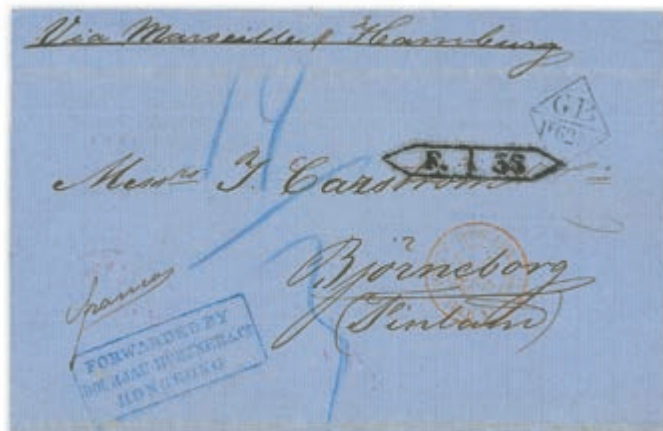 Via Marseille & Hamburg
14
GB
1F62
F. 1 35
Messrs F. Carström
Björneborg
(Finland)
franco
FORWARDED BY
HONGKONG